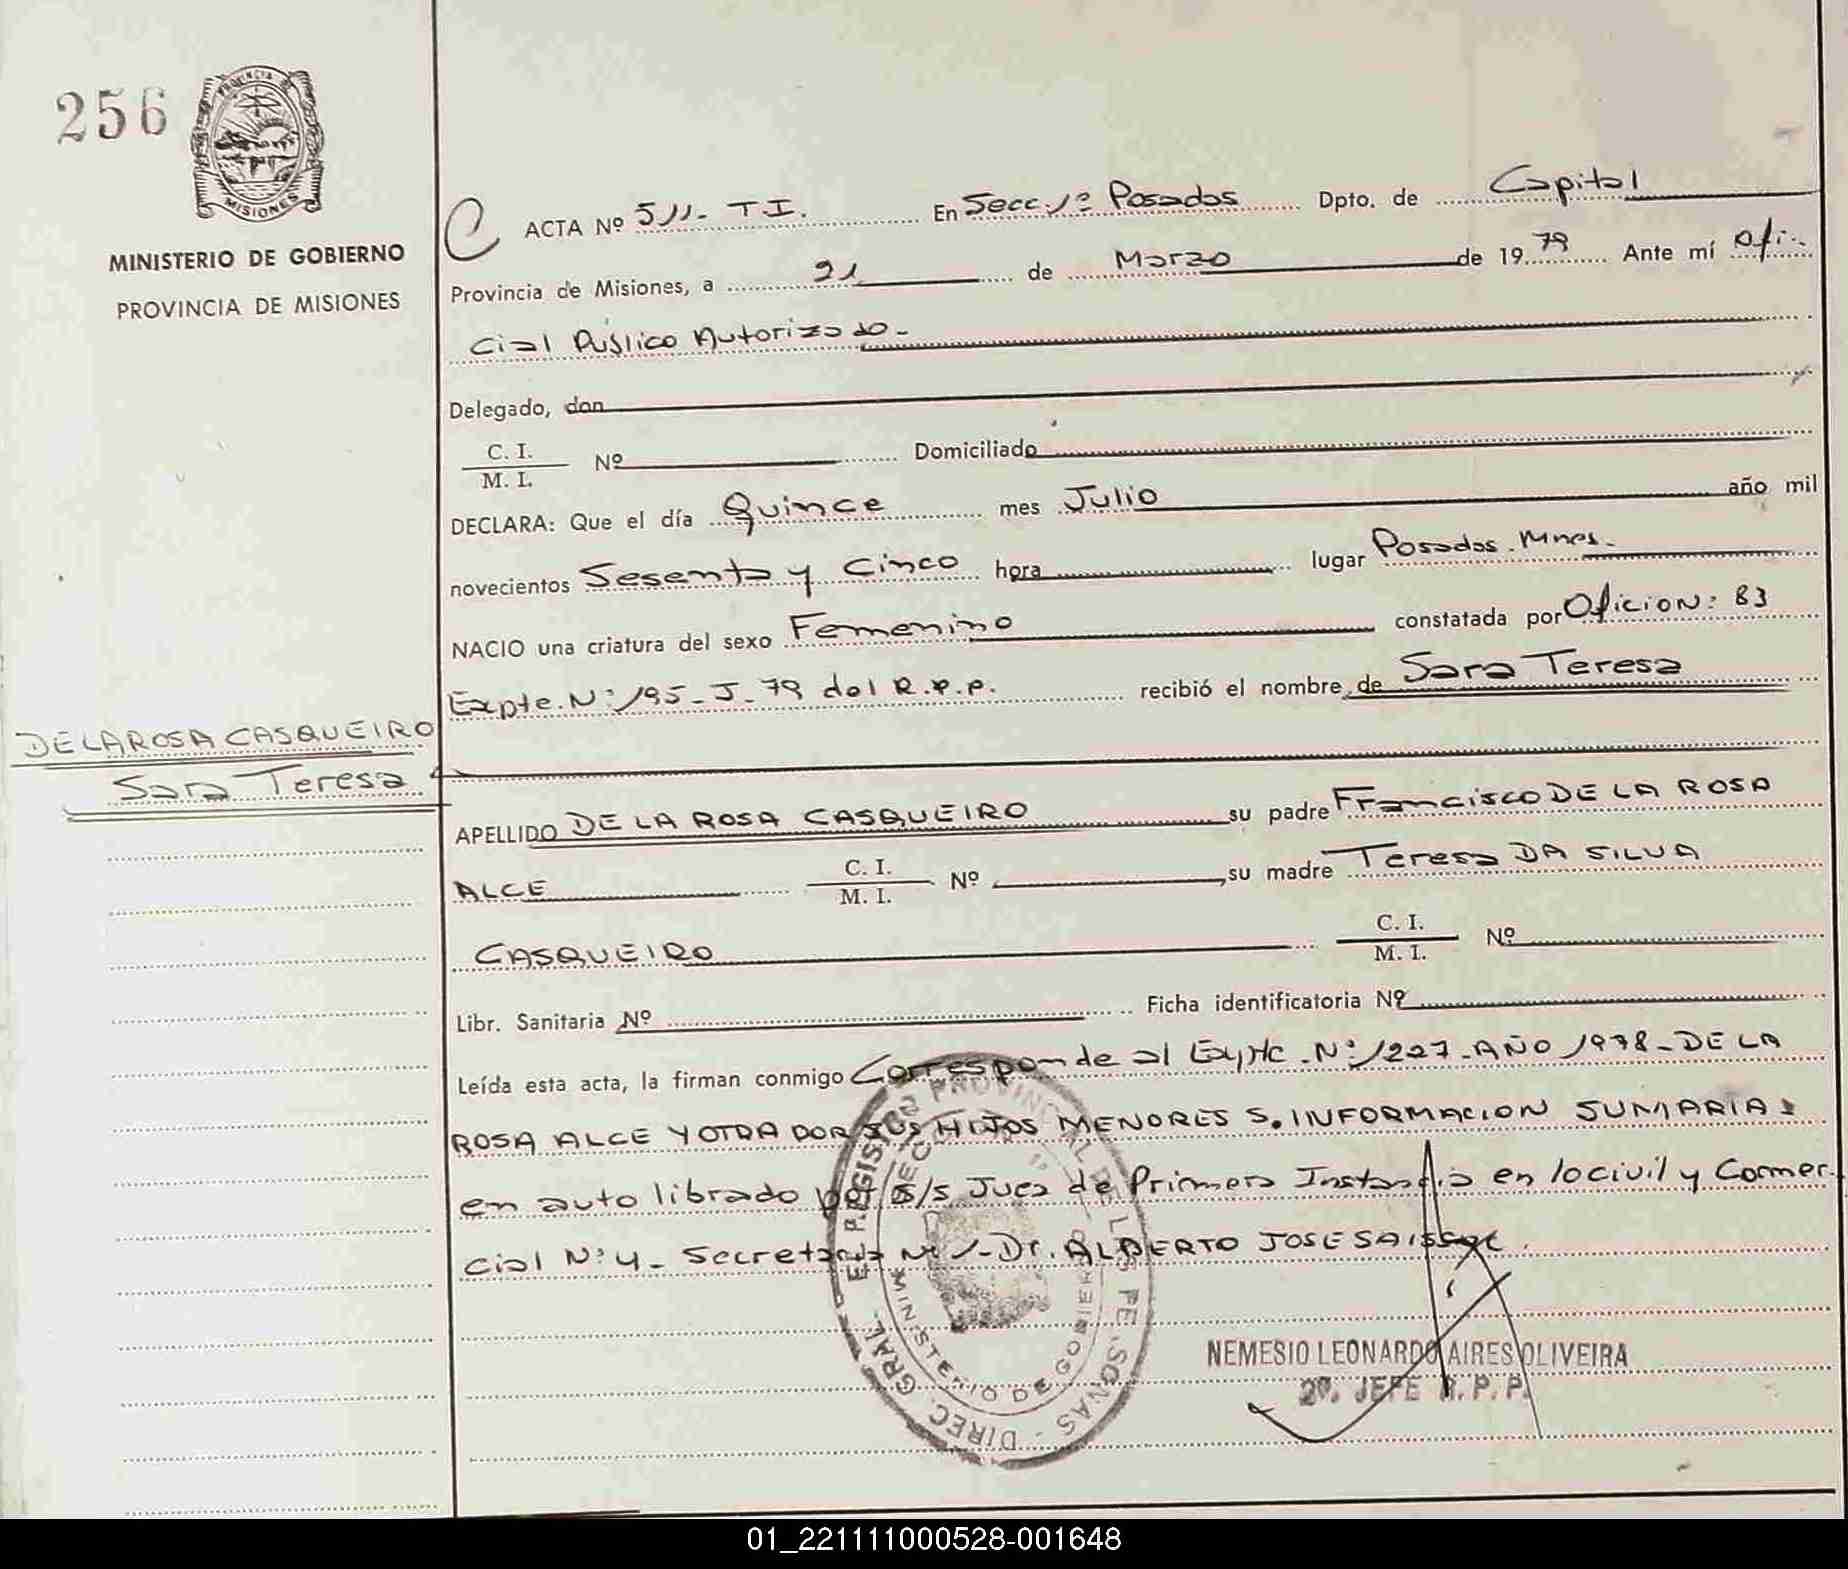 256
PROVINCIA DE
MISIONES
MINISTERIO DE GOBIERNO
PROVINCIA DE MISIONES
ACTA Nº 511- T I. En Secc. 1º Posadas Dpto. de Capital
Provincia de Misiones, a 21 de Marzo de 1979 Ante mí Ofi-
cial Público Autorizado-
Delegado, don
C. I.
M. I. Nº Domiciliado
DECLARA: Que el día Quince mes Julio año mil
novecientos Sesenta y Cinco hora lugar Posadas. Mnes.
NACIO una criatura del sexo Femenino constatada por Oficio N: 83
Expte. Nº 195-J-79 del R.P.P. recibió el nombre de Sara Teresa
DE LA ROSA CASQUEIRO
Sara Teresa
APELLIDO DE LA ROSA CASQUEIRO su padre Francisco DE LA ROSA
ALCE C. I. M. I. Nº , su madre Teresa DA SILVA
CASQUEIRO C. I. M. I. Nº
Libr. Sanitaria Nº Ficha identificatoria Nº
Leída esta acta, la firman conmigo Corresponde al Expte. Nº 1227-AÑO 1978-DE LA
ROSA ALCE Y OTRA POR SUS HIJOS MENORES S. INFORMACION SUMARIA:
en auto librado por S/S Juez de Primera Instancia en lo civil y Comer-
cial Nº 4- Secretaria Nº 1-Dr. ALBERTO JOSE
DIREC. GRAL. REGISTRO PROVINCIAL DE LAS PERSONAS
MINISTERIO DE GOBIERNO
NEMESIO LEONARDO AIRES OLIVEIRA
2º. JEFE R. P. P.
01_221111000528-001648